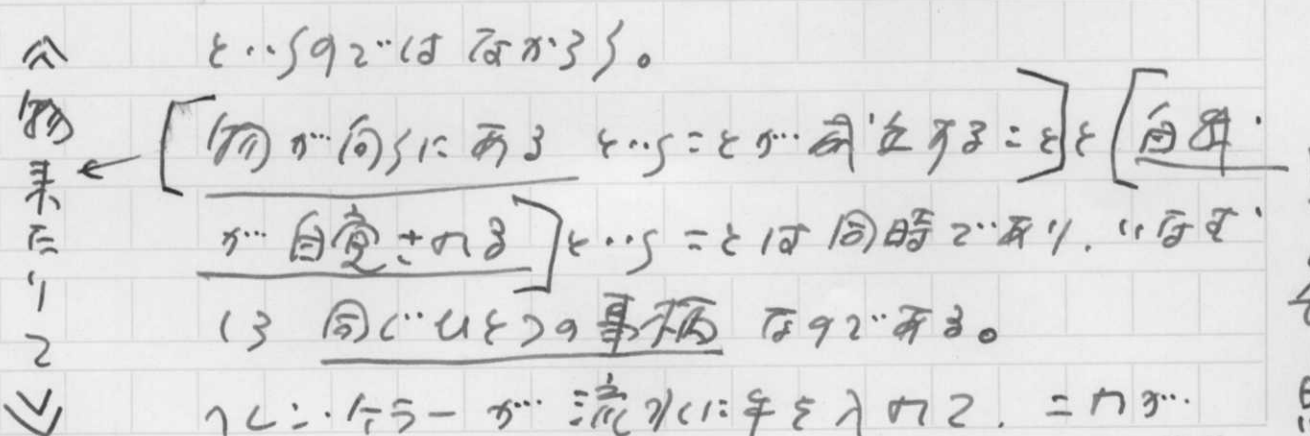 というのではなかろう。
[物が向うにあるということが成立すること]と[自
が自覚される]ということは同時であり、いなむ
しろ同じひとつの事柄なのである。
ヘレン・ケラーが流水に手を入れて、これが
《物来たりて》